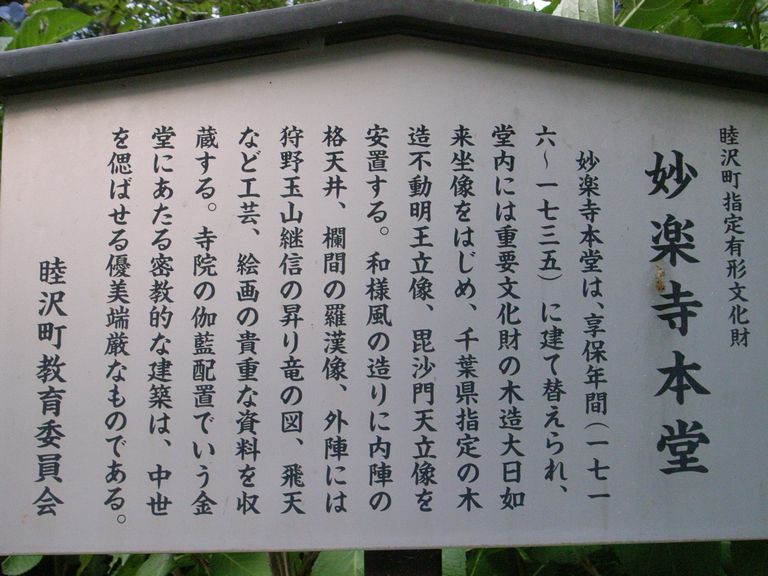 睦沢町指定有形文化財
妙楽寺本堂
妙楽寺本堂は、享保年間(一七一
六～一七三五)に建て替えられ、
堂内には重要文化財の木造大日如
来坐像をはじめ、千葉県指定の木
造不動明王立像、毘沙門天立像を
安置する。和様風の造りに内陣の
格天井、欄間の羅漢像、外陣には
狩野玉山継信の昇り竜の図、飛天
など工芸、絵画の貴重な資料を収
蔵する。寺院の伽藍配置でいう金
堂にあたる密教的な建築は、中世
を偲ばせる優美端厳なものである。
睦沢町教育委員会